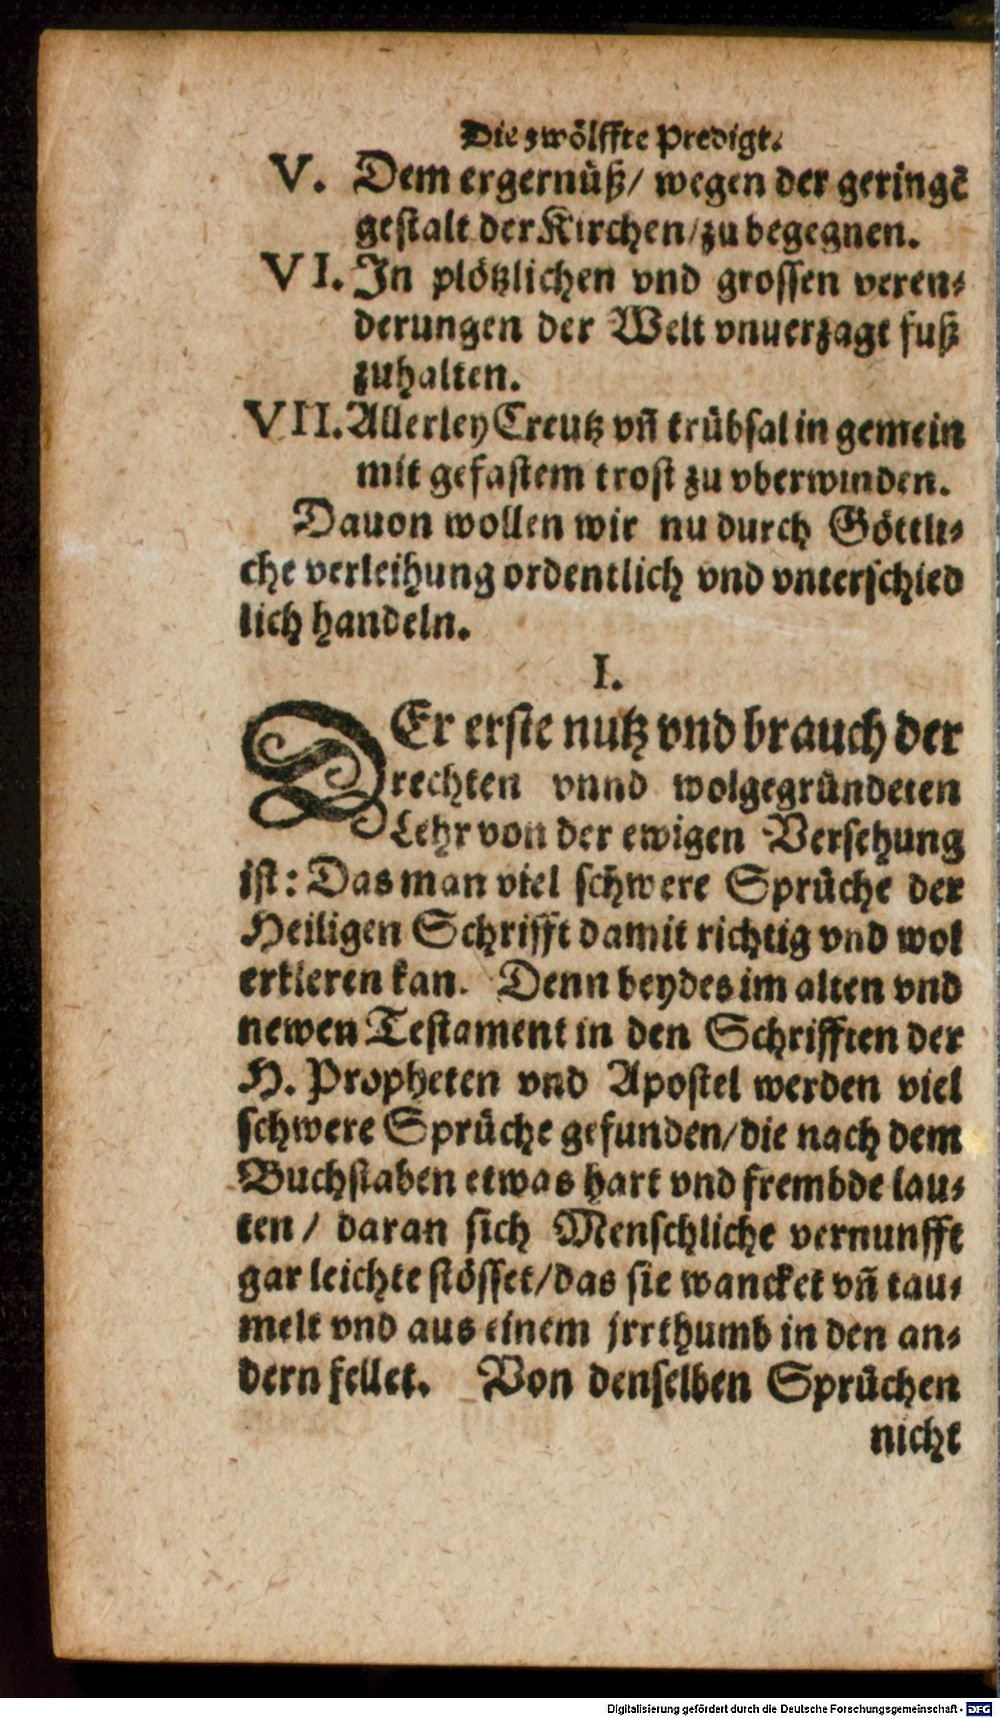 Die zwölffte Predigt.
V. Dem ergernüß/ wegen der geringẽ
gestalt der Kirchen/zu begegnen.
VI. In plötzlichen vnd grossen veren-
derungen der Welt vnuerzagt fuß
zuhalten.
VII. Allerley Creutz vñ trübsal in gemein
mit gefastem trost zu vberwinden.
Dauon wollen wir nu durch Göttli-
che verleihung ordentlich vnd vnterschied
lich handeln.
I.
DEr erste nutz vnd brauch der
rechten vnnd wolgegründeten
Lehr von der ewigen Versehung
ist: Das man viel schwere Sprüche der
Heiligen Schrifft damit richtig vnd wol
erkleren kan. Denn beydes im alten vnd
newen Testament in den Schrifften der
H. Propheten vnd Apostel werden viel
schwere Sprüche gefunden/die nach dem
Buchstaben etwas hart vnd frembde lau-
ten/ daran sich Menschliche vernunfft
gar leichte stösset/das sie wancket vñ tau-
melt vnd aus einem jrrthumb in den an-
dern fellet. Von denselben Sprüchen
nicht
Digitalisierung gefördert durch die Deutsche Forschungsgemeinschaft - DFG